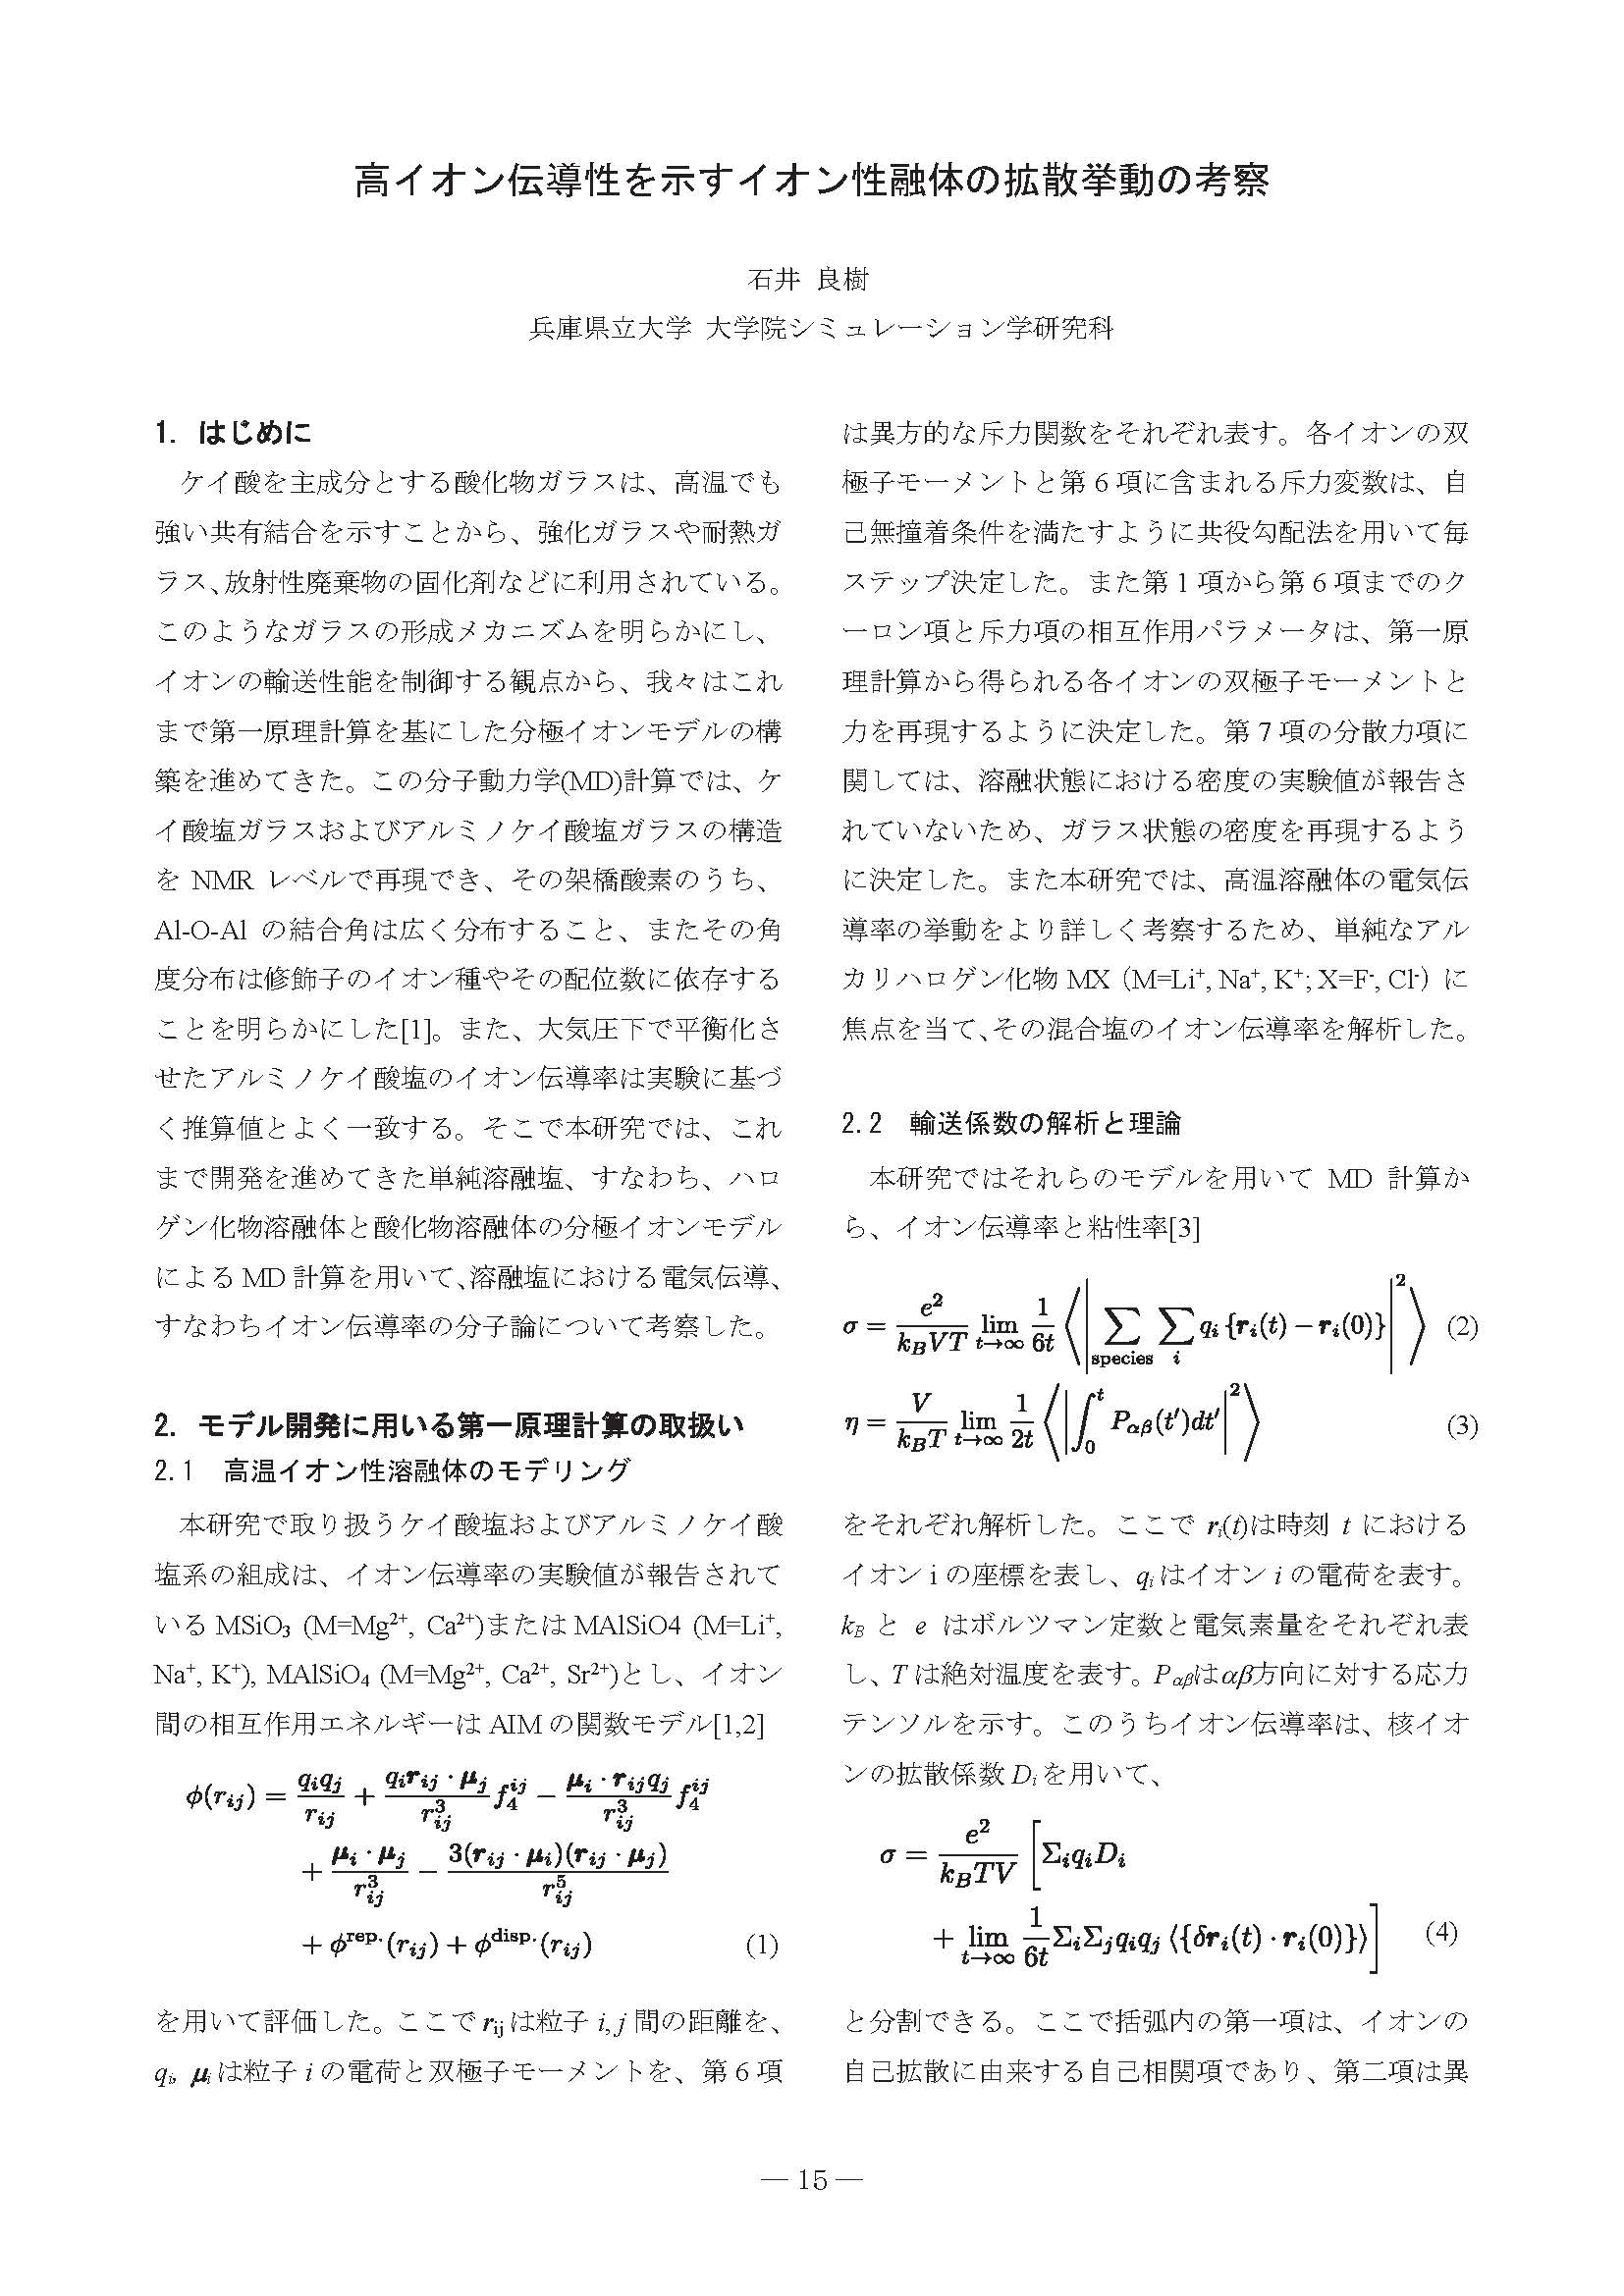 高イオン伝導性を示すイオン性融体の拡散挙動の考察
石井 良樹
兵庫県立大学 大学院シミュレーション学研究科
1. はじめに
ケイ酸を主成分とする酸化物ガラスは、高温でも
強い共有結合を示すことから、強化ガラスや耐熱ガ
ラス、放射性廃棄物の固化剤などに利用されている。
このようなガラスの形成メカニズムを明らかにし、
イオンの輸送性能を制御する観点から、我々はこれ
まで第一原理計算を基にした分極イオンモデルの構
築を進めてきた。この分子動力学(MD)計算では、ケ
イ酸塩ガラスおよびアルミノケイ酸塩ガラスの構造
を NMR レベルで再現でき、その架橋酸素のうち、
Al-O-Al の結合角は広く分布すること、またその角
度分布は修飾子のイオン種やその配位数に依存する
ことを明らかにした[1]。また、大気圧下で平衡化さ
せたアルミノケイ酸塩のイオン伝導率は実験に基づ
く推算値とよく一致する。そこで本研究では、これ
まで開発を進めてきた単純溶融塩、すなわち、ハロ
ゲン化物溶融体と酸化物溶融体の分極イオンモデル
による MD 計算を用いて、溶融塩における電気伝導、
すなわちイオン伝導率の分子論について考察した。
2. モデル開発に用いる第一原理計算の取扱い
2.1 高温イオン性溶融体のモデリング
本研究で取り扱うケイ酸塩およびアルミノケイ酸
塩系の組成は、イオン伝導率の実験値が報告されて
いる MSiO₃ (M=Mg²⁺, Ca²⁺)または MAlSiO4 (M=Li⁺,
Na⁺, K⁺), MAlSiO₄ (M=Mg²⁺, Ca²⁺, Sr²⁺)とし、イオン
間の相互作用エネルギーは AIM の関数モデル[1,2]
$\phi(r_{ij}) = \frac{q_i q_j}{r_{ij}} + \frac{q_i \boldsymbol{r}_{ij} \cdot \boldsymbol{\mu}_j}{r_{ij}^3} f_4^{ij} - \frac{\boldsymbol{\mu}_i \cdot \boldsymbol{r}_{ij} q_j}{r_{ij}^3} f_4^{ij}$
$+ \frac{\boldsymbol{\mu}_i \cdot \boldsymbol{\mu}_j}{r_{ij}^3} - \frac{3(\boldsymbol{r}_{ij} \cdot \boldsymbol{\mu}_i)(\boldsymbol{r}_{ij} \cdot \boldsymbol{\mu}_j)}{r_{ij}^5}$
$+ \phi^{\mathrm{rep.}}(r_{ij}) + \phi^{\mathrm{disp.}}(r_{ij})$ (1)
を用いて評価した。ここで r_ij は粒子 i, j 間の距離を、
q_i, μ_i は粒子 i の電荷と双極子モーメントを、第 6 項
は異方的な斥力関数をそれぞれ表す。各イオンの双
極子モーメントと第 6 項に含まれる斥力変数は、自
己無撞着条件を満たすように共役勾配法を用いて毎
ステップ決定した。また第 1 項から第 6 項までのク
ーロン項と斥力項の相互作用パラメータは、第一原
理計算から得られる各イオンの双極子モーメントと
力を再現するように決定した。第 7 項の分散力項に
関しては、溶融状態における密度の実験値が報告さ
れていないため、ガラス状態の密度を再現するよう
に決定した。また本研究では、高温溶融体の電気伝
導率の挙動をより詳しく考察するため、単純なアル
カリハロゲン化物 MX（M=Li⁺, Na⁺, K⁺; X=F⁻, Cl⁻）に
焦点を当て、その混合塩のイオン伝導率を解析した。
2.2 輸送係数の解析と理論
本研究ではそれらのモデルを用いて MD 計算か
ら、イオン伝導率と粘性率[3]
$\sigma = \frac{e^2}{k_B V T} \lim_{t \to \infty} \frac{1}{6t} \left\langle \left| \sum_{\mathrm{species}} \sum_i q_i \{\boldsymbol{r}_i(t) - \boldsymbol{r}_i(0)\} \right|^2 \right\rangle$ (2)
$\eta = \frac{V}{k_B T} \lim_{t \to \infty} \frac{1}{2t} \left\langle \left| \int_0^t P_{\alpha\beta}(t') dt' \right|^2 \right\rangle$ (3)
をそれぞれ解析した。ここで r_i(t)は時刻 t における
イオン i の座標を表し、q_i はイオン i の電荷を表す。
k_B と e はボルツマン定数と電気素量をそれぞれ表
し、T は絶対温度を表す。P_αβはαβ方向に対する応力
テンソルを示す。このうちイオン伝導率は、核イオ
ンの拡散係数 D_i を用いて、
$\sigma = \frac{e^2}{k_B T V} \left[ \Sigma_i q_i D_i \right.$
$\left. + \lim_{t \to \infty} \frac{1}{6t} \Sigma_i \Sigma_j q_i q_j \langle \{\delta \boldsymbol{r}_i(t) \cdot \boldsymbol{r}_i(0)\} \rangle \right]$ (4)
と分割できる。ここで括弧内の第一項は、イオンの
自己拡散に由来する自己相関項であり、第二項は異
— 15 —